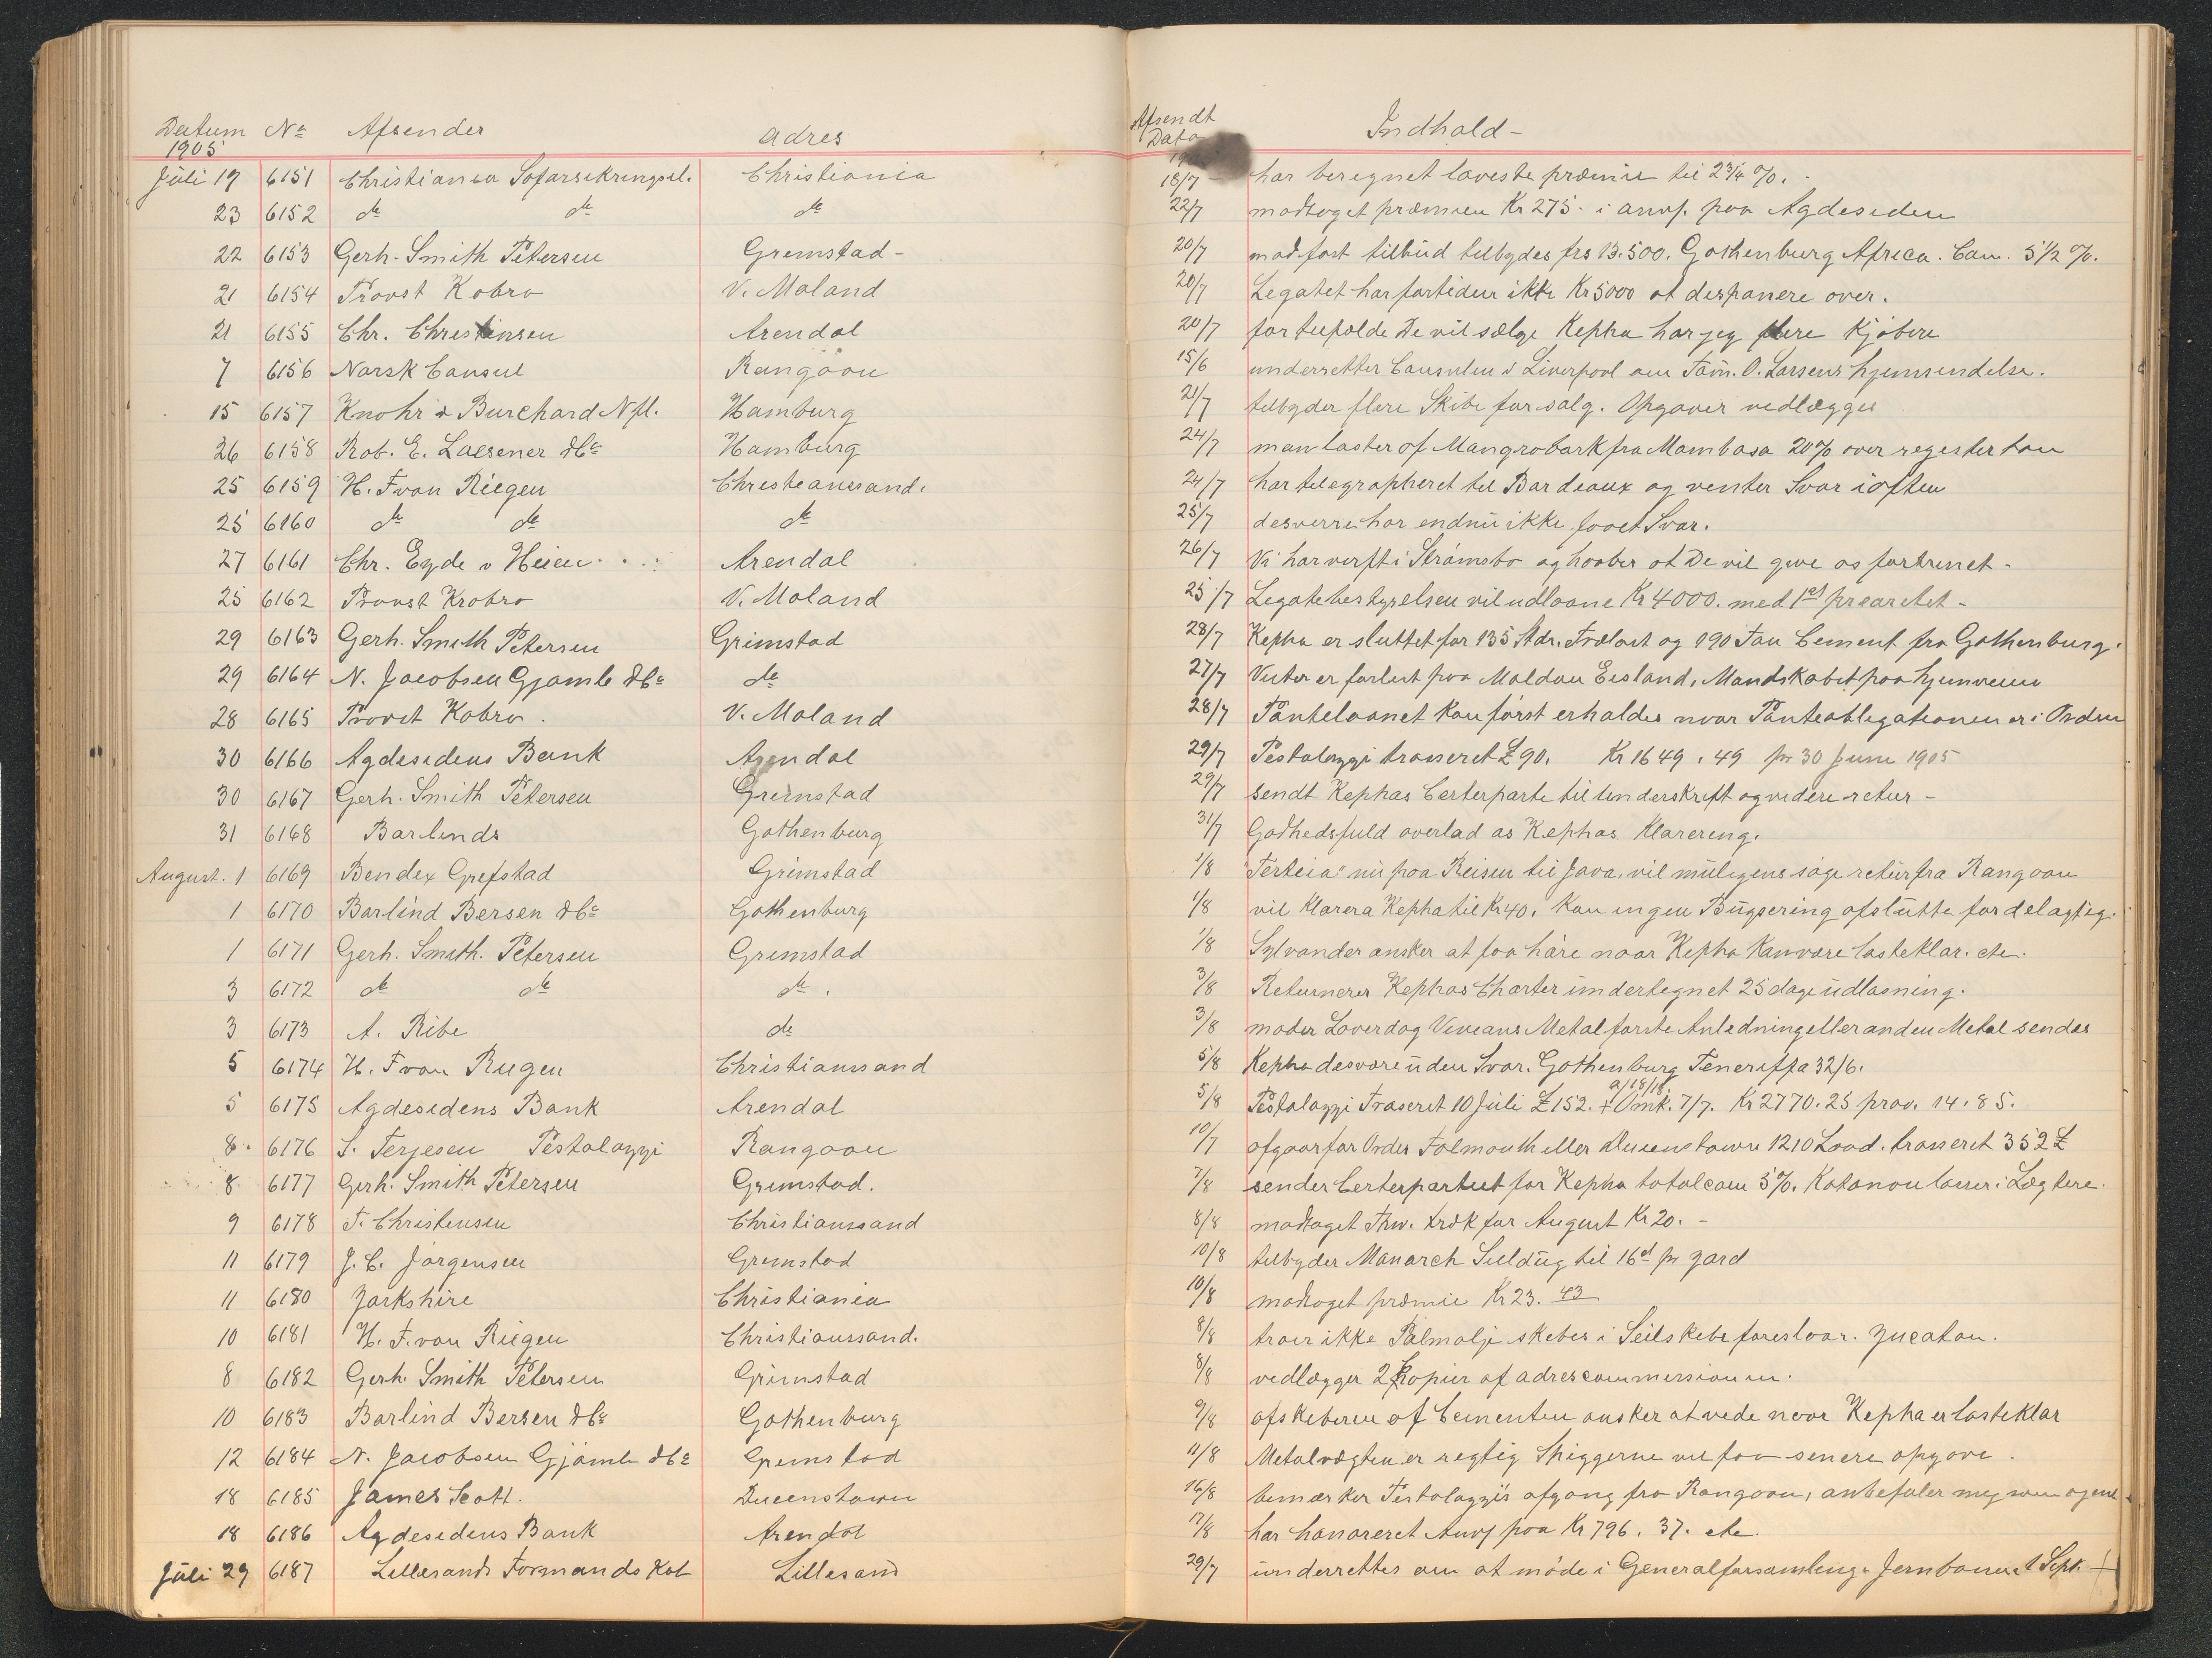 Datum No Afsender adres Afsendt Dato Indhold -
1905
Juli 19 6151 Christiania Søforsikringsel. Christiania 18/7 - har beregnet laveste præmie til 2 3/4 %. -
23 6152 do do do 22/7 modtaget præmien Kr 275 - i anvs. paa Agdesiden
22 6153 Gerh. Smith Petersen Grimstad - 20/7 mod fast tilbud tilbydes frs 13.500. Gothenburg Africa. Com. 5 1/2 %.
21 6154 Provst Kobro V. Moland 20/7 Legatet har fortiden ikke Kr 5000 at disponere over.
21 6155 Chr. Christensen Arendal 20/7 for tilfælde De vil sælge Kepha har jeg flere Kjøbere
7 6156 Norsk Consul Rangoon 15/6 underretter Consulen i Liverpool om Tøm. O. Larsens hjemsendelse.
15 6157 Knohr & Burchard Nfl. Hamburg 21/7 tilbyder flere Skibe for salg. Opgaver vedlægges
26 6158 Rob. E. Loesener & Co Hamburg 24/7 man laster af Mangrobark fra Mombasa 20 % over register ton
25 6159 H. F von Riegen Christianssand. 24/7 har telegrapheret til Bordeaux og venter Svar i aften
25 6160 do do do 25/7 desverre har endnu ikke faaet Svar.
27 6161 Chr. Eyde v Heien Arendal 26/7 Vi har verft i Strømsbo og haaber at De vil give os fortrinet -
25 6162 Provst Krobro V. Moland 25/7 Legatbestyrelsen vil udlaane Kr 4000. med 1st prioritet -
29 6163 Gerh. Smith Petersen Grimstad 28/7 Kepha er sluttet for 135 Stdr. Trælast og 190 Ton Cement fra Gothenburg.
29 6164 N. Jacobsen Gjømle & Co do 27/7 er forlist paa Maldon Eisland, Mandskabet paa hjemveien
28 6165 Provst Kobro. V. Moland 28/7 Panteloanet kan først erholdes naar Panteobligationen er i Orden
30 6166 Agdesidens Bank Arendal 29/7 Pestalozzi trasseret £ 90. Kr 1649.49 pr 30 Juni 1905
30 6167 Gerh. Smith Petersen Grimstad 29/7 sendt Kephas Certeparti til Underskrift og videre retur -
31 6168 Barlinds Gothenburg 31/7 Godhedsfuld overlad os Kephas Klarering.
August. 1 6169 Bendix Grefstad Grimstad 1/8 "Terteia" nu paa Reisen til Java, vil muligens søge retur fra Rangoon
1 6170 Barlind Bersen & Co Gothenburg 1/8 vil klarera Kepha til Kr 40. kan ingen Bugsering afslutte fordelagtig.
1 6171 Gerh. Smith. Petersen Grimstad 1/8 Sylvander ønsker at faa høre naar Kepha kan være lasteklar. etc.
3 6172 do do do. 3/8 Returnerer Kephas Charter undertegnet 25 dage udlosning.
3 6173 A. Ribe do 3/8 Vivians Metal første Anledning eller anden Metal sendes
5 6174 H. F von Riegen Christianssand 5/8 Kepha desvære uden Svar. Gothenburg Teneriffa 32/6.
5 6175 Agdesidens Bank Arendal 5/8 Pestalozzi Traseret 10 Juli £ 152. + Omk. 7/7. Kr 2770.25 prov. 14.85.
8. 6176 S. Terjesen Pestalozzi Rangoon 10/7 afgaar for Order Falmouth eller Queenstown 1210 Load. trasseret 352 £
8 6177 Gerh. Smith Petersen Grimstad. 7/8 sender Certepartiet for Kepha total com 5 %. Kotonou losser i Lægtere.
9 6178 F. Christensen Christianssand 8/8 modtaget Thv. træk for August Kr 20. -
11 6179 J. C. Jørgensen Grimstad 10/8 tilbyder Monarch Seildug til 16d pr yard
11 6180 Yorkshire Christiania 10/8 modtaget præmie Kr 23. 43
10 6181 H. F. von Riegen Christianssand. 8/8 troer ikke Palmolje skibes i Seilskibe foreslaar. Yucatan.
8 6182 Gerh. Smith Petersen Grimstad 8/8 vedlægger 2 Kopier af adrescommissionen.
10 6183 Barlind Bersen & Co Gothenburg 9/8 afskiberen af Cementen ønsker at vide naar Kepha er lasteklar
12 6184 N. Jacobsen Gjømle & Co Grimstad 11/8 Metalvægten er regtig Spiggerne vil faa senere opgave.
18 6185 James Scott. Queenstown 16/8 bemærker Pestalozzi's afgang fra Rangoon, anbefaler meg som agent
18 6186 Agdesidens Bank Arendal 17/8 har honoreret Anvs paa Kr 796. 37. etc.
Juli 29 6187 Lillesands Formands Kob Lillesand 29/7 underrettes om at møde i Generalforsamling. Jernbanen 1 Sept. +